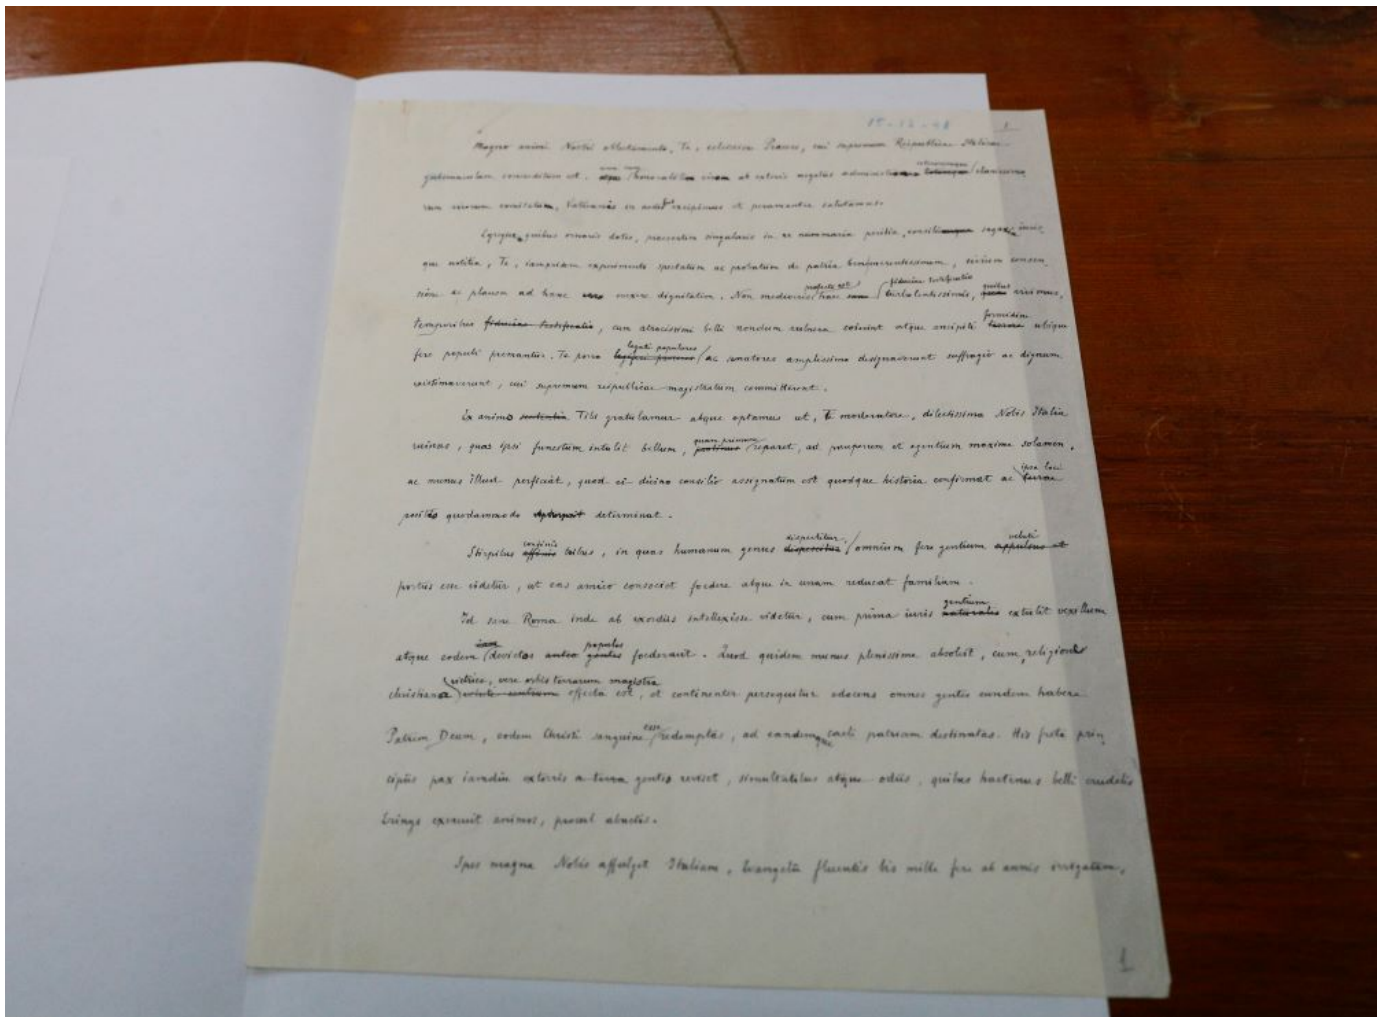 15-12-48
1
Magno animi Nostri oblectamento, Te, celsissime Praeses, cui supremum Reipublicae Italicae
gubernaculum concreditum est. honorabilem virum ab exteris negotiis clarissimo
rum virorum comitatum, Vaticanis in aedibus recipimus et peramanter salutamus.
Egregiae, quibus ornaris dotes, praesertim singularis in re nummaria peritia, sagax
que notitia, Te, iampridem experimento spectatum ac probatum de patria benemerentissimum, civium consen
sione ac plausu ad hanc evexere dignitatem. Non mediocris haec
profecto est fiduciae testificatio quibus
turbulentissimis, vivimus,
temporibus fiduciae testificatio, cum atrocissimi belli nondum vulnera coierint atque ancipiti ubique
formidine
legati populares
fere populi premantur. Te porro ac senatores amplissimo designaverunt suffragio ac dignum
existimaverunt, cui supremum reipublicae magistratum committerent.
Ex animo Tibi gratulamur atque optamus ut, Te moderatore, dilectissima Nobis Italia
quam primum
ruinas, quas ipsi funestum intulit bellum, protinus reparet, ad pauperum et egentium maxime solamen,
ipsa loci
ac munus illud perficiat, quod ei divino consilio assignatum est quodque historia confirmat ac
positio quodammodo determinat.
dispertitur veluti
Stirpibus talibus, in quas humanum genus dispescitur omnium fere gentium appulsus et
portus esse videtur, ut eas amico consociet foedere atque in unam reducat familiam.
gentium
Id sane Roma inde ab exordiis intellexisse videtur, cum prima iuris naturalis extulit vexillum
iam populos
atque eodem devictos antea gentes foederavit. Quod quidem munus plenissime absolvit, cum, religione
victrice, vere orbis terrarum magistra
christiana effecta est, et continenter persequitur edocens omnes gentes eundem habere
esse
Patrem Deum, eodem Christi sanguine redemptas, ad eandemque caeli patriam destinatas. His freta prin
cipiis pax iamdiu extorris a terra gentes reviset, simultatibus atque odiis, quibus hactenus belli crudelis
Erinys exacuit animos, procul abactis.
Spes magna Nobis affulget Italiam, Evangelii fluentis bis mille fere ab annis irrigatam,
1